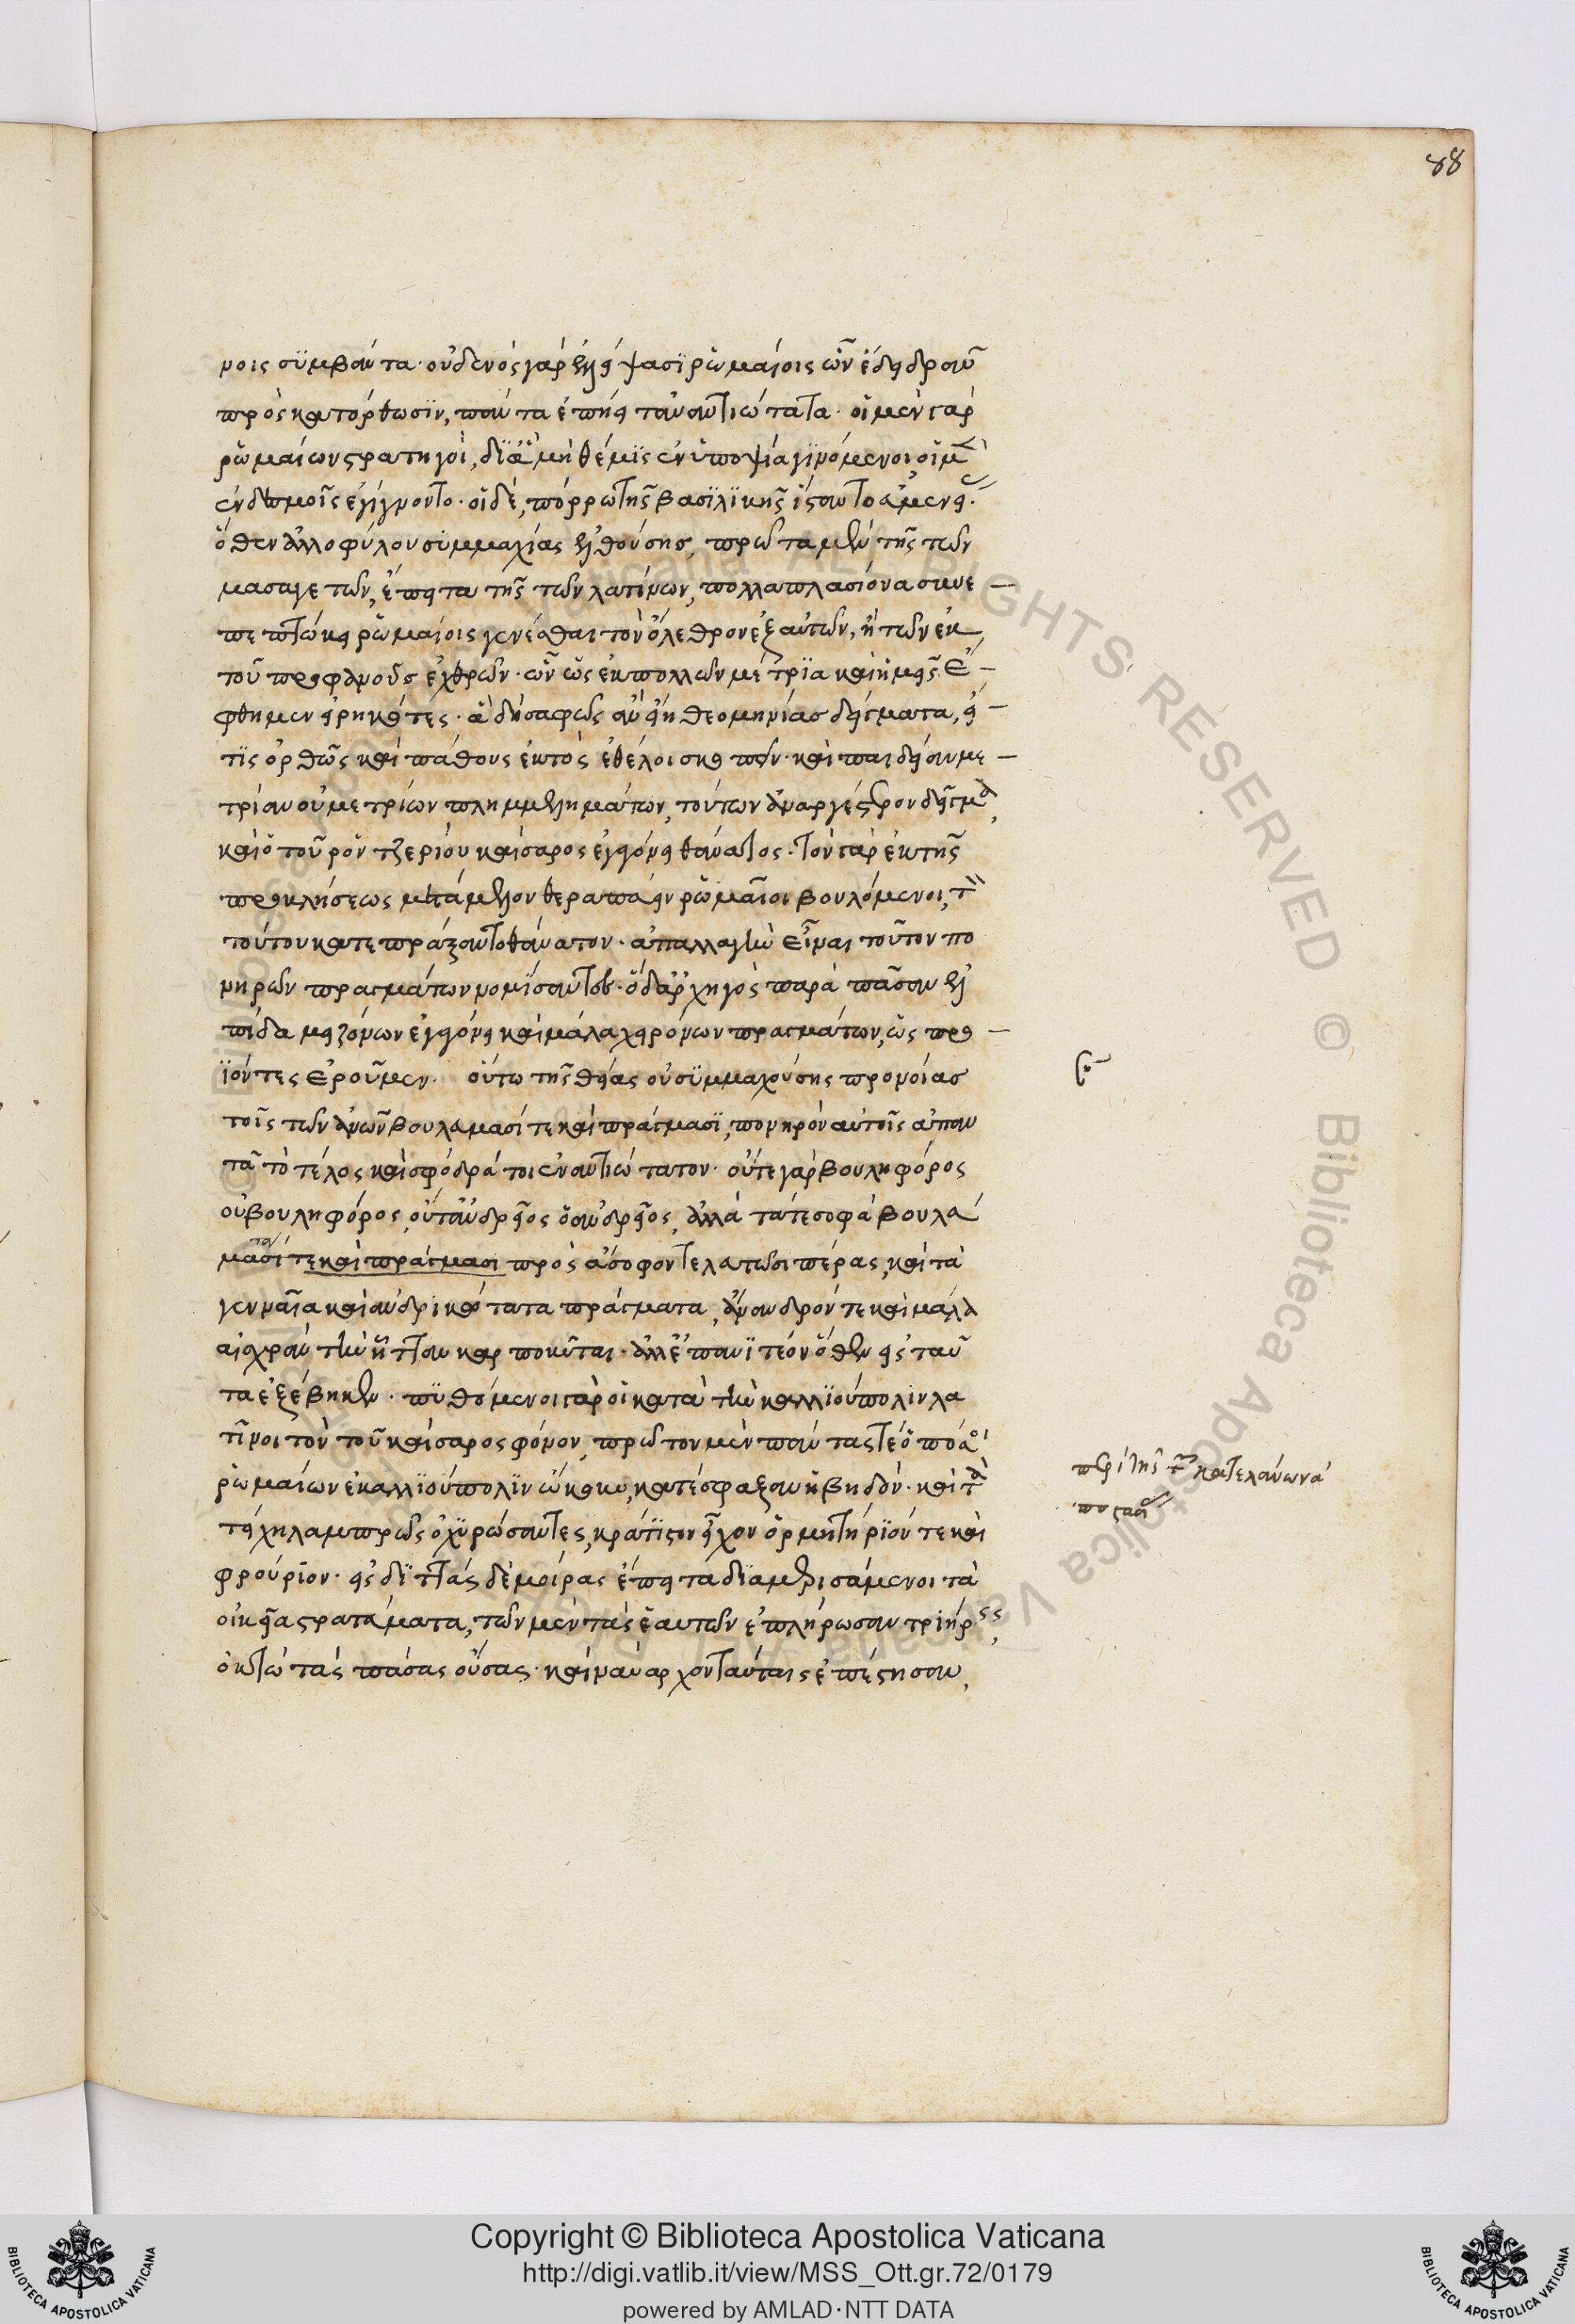 88
νοις συμβάντα· οὐδενὸς γὰρ ἐλλείψασι ῥωμαίοις ὧν ἔδει δρᾶν
πρὸς κατόρθωσιν, πάντα ἐπῄει τἀναντιώτατα· οἱ μὲν γὰρ
ῥωμαίων στρατηγοὶ, δι' ἃ μὴ θέμις ἐν ὑποψίᾳ γινόμενοι, οἱ μὲν
ἐν δεσμοῖς ἐγίγνοντο· οἱ δὲ, πόρρω τῆς βασιλικῆς ἵσταντο
ὅθεν ἀλλοφύλου συμμαχίας ἐλθούσης, πρῶτα μὲν τῆς τῶν
μασαγετῶν, ἔπειτα τῆς τῶν λατίνων, πολλαπλασίονα συνε
πεπτώκει ῥωμαίοις γενέσθαι τὸν ὄλεθρον ἐξ αὐτῶν, ἢ τῶν ἐκ
τοῦ προφανοῦς ἐχθρῶν· ὧν ὡς ἐκ πολλῶν μέτρια καὶ ἡμεῖς ἔ
φθημεν εἰρηκότες· ἃ δὴ σαφῶς ἂν εἴη θεομηνίας δείγματα, εἴ
τις ὀρθῶς καὶ πάθους ἐκτὸς ἐθέλοι σκοπεῖν· καὶ παιδείαν με
τρίαν οὐ μετρίων πλημμελημάτων, τούτων ἐναργέστερον δεῖγμα,
καὶ ὁ τοῦ ῥοντζερίου καίσαρος ἐγεγόνει θάνατος· τὸν γὰρ ἐκ τῆς
προσκλήσεως μετάμελον θεραπεύειν ῥωμαῖοι βουλόμενοι, τὸν
τούτου κατεπράξαντο θάνατον· ἀπαλλαγὴν εἶναι τοῦτον πο
νηρῶν πραγμάτων νομίσαντες· ὁ δ' ἀρχηγὸς παρὰ πᾶσαν ἐλ
πίδα μειζόνων ἐγεγόνει καὶ μάλα χειρόνων πραγμάτων, ὡς προ
ϊόντες ἐροῦμεν· οὕτω τῆς θείας οὐ συμμαχούσης προνοίας
τοῖς τῶν ἀνθρώπων βουλεύμασί τε καὶ πράγμασι, πονηρὸν αὐτοῖς ἀπαν
τᾷ τὸ τέλος καὶ σφόδρά τοι ἐναντιώτατον· οὔτε γὰρ βουληφόρος
ὁ βουληφόρος, οὔτ' ἀνδρεῖος ὁ ἀνδρεῖος, ἀλλὰ τά τε σοφὰ βουλεύ
μασί τε καὶ πράγμασι πρὸς ἄσοφον τελευτῶσι πέρας, καὶ τὰ
τα
γενναῖα καὶ ἀνδρικώτατα πράγματα, ἄνανδρόν τε καὶ μάλα
αἰσχρὰν τὴν ἧτταν καρποῦνται· ἀλλ' ἐπανιτέον ὅθεν εἰς ταῦ
τα ἐξέβημεν· πυθόμενοι γὰρ οἱ κατὰ τὴν καλλιούπολιν λα
τῖνοι τὸν τοῦ καίσαρος φόνον, πρῶτον μὲν πάντας τε ὁπόσοι
ῥωμαίων ἐν καλλιουπόλιν ᾤκουν, κατέσφαξαν ἡβηδόν· καὶ τὰ
τείχη λαμπρῶς ὀχυρώσαντες, κράτιστον εἶχον ὁρμητήριόν τε καὶ
φρούριον· εἰς διττὰς δὲ μοίρας ἔπειτα διαμερισάμενοι τὰ
οἰκεῖα στρατεύματα, τῶν μὲν τὰς ἑαυτῶν ἐπλήρωσαν τριήρεις,
ὀκτὼ τὰς πάσας οὔσας· καὶ ναύαρχον ταύταις ἐπέστησαν,
περὶ τῆς τῶν κατελάνων ἀ
ποστασίας
Copyright © Biblioteca Apostolica Vaticana
http://digi.vatlib.it/view/MSS_Ott.gr.72/0179
powered by AMLAD·NTT DATA
BIBLIOTECA APOSTOLICA VATICANA
BIBLIOTECA APOSTOLICA VATICANA